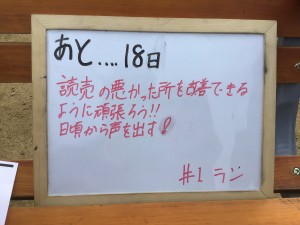 あと....18日
読売の悪かった所を改善できる
ように頑張ろう!!
日頃から声を出す!
#1 ラン